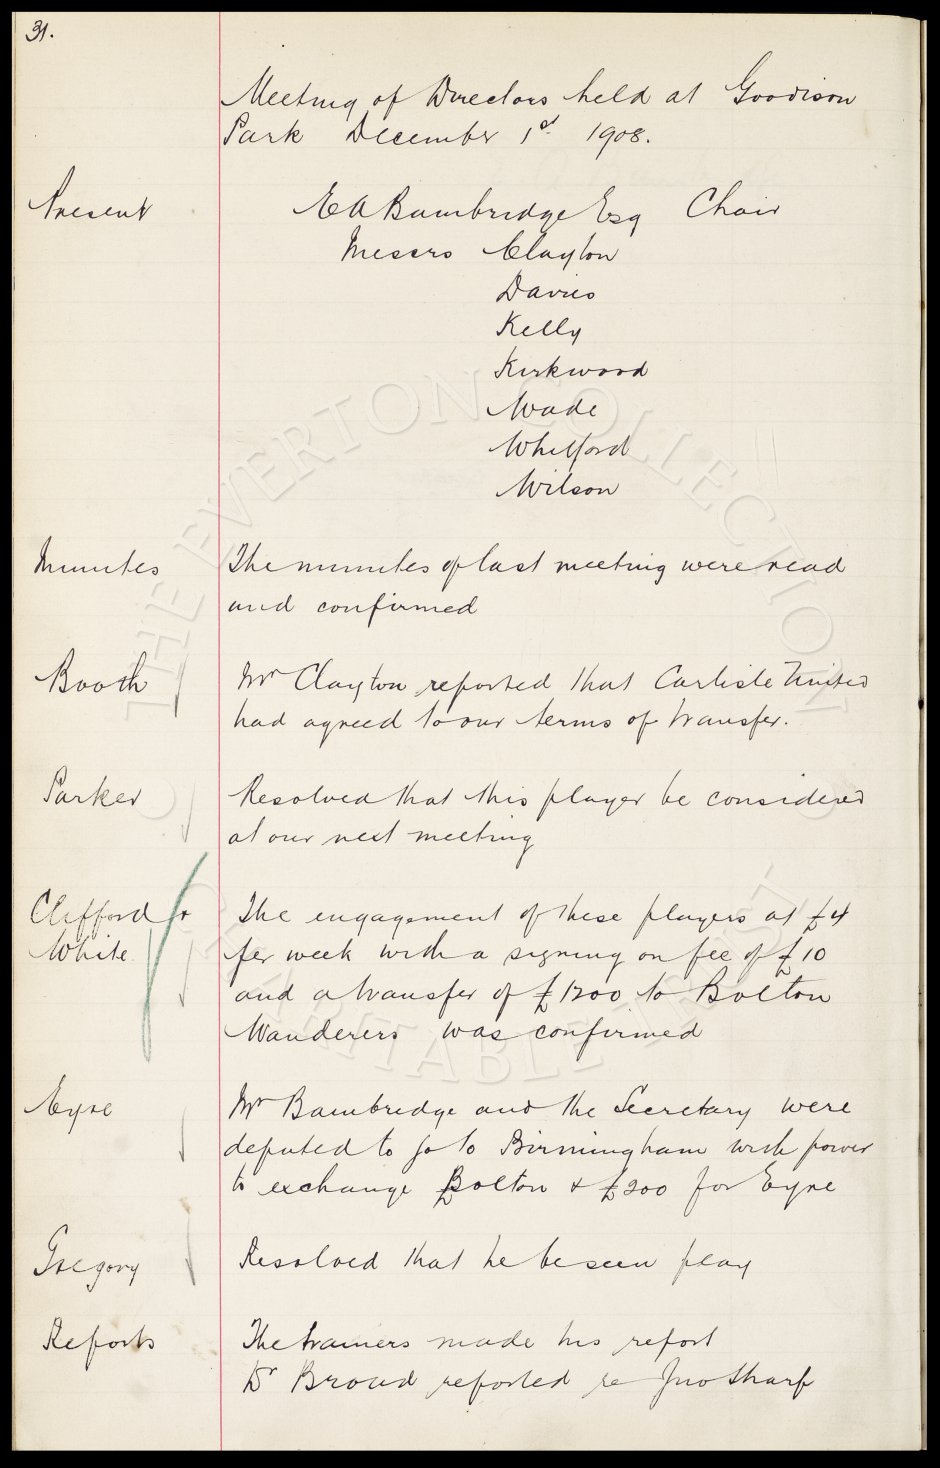 31.
Meeting of Directors held at Goodison
Park December 1st 1908.
Present E A Bambridge Esq Chair
Messrs Clayton
Davies
Kelly
Kirkwood
Wade
Whitford
Wilson
Minutes The minutes of last meeting were read
and confirmed
Booth Mr Clayton reported that Carlisle United
had agreed to our terms of transfer.
Parker Resolved that this player be considered
at our next meeting
Clifford & The engagement of these players at £4
White per week with a signing on fee of £10
and a transfer of £1200 to Bolton
Wanderers was confirmed
Eyre Mr Bambridge and the Secretary were
deputed to go to Birmingham with power
to exchange Bolton & £200 for Eyre
Gregory Resolved that he be seen play
Reports The trainers made his report
Dr Broad reported re Jno Sharp
THE EVERTON COLLECTION
CHARITABLE TRUST